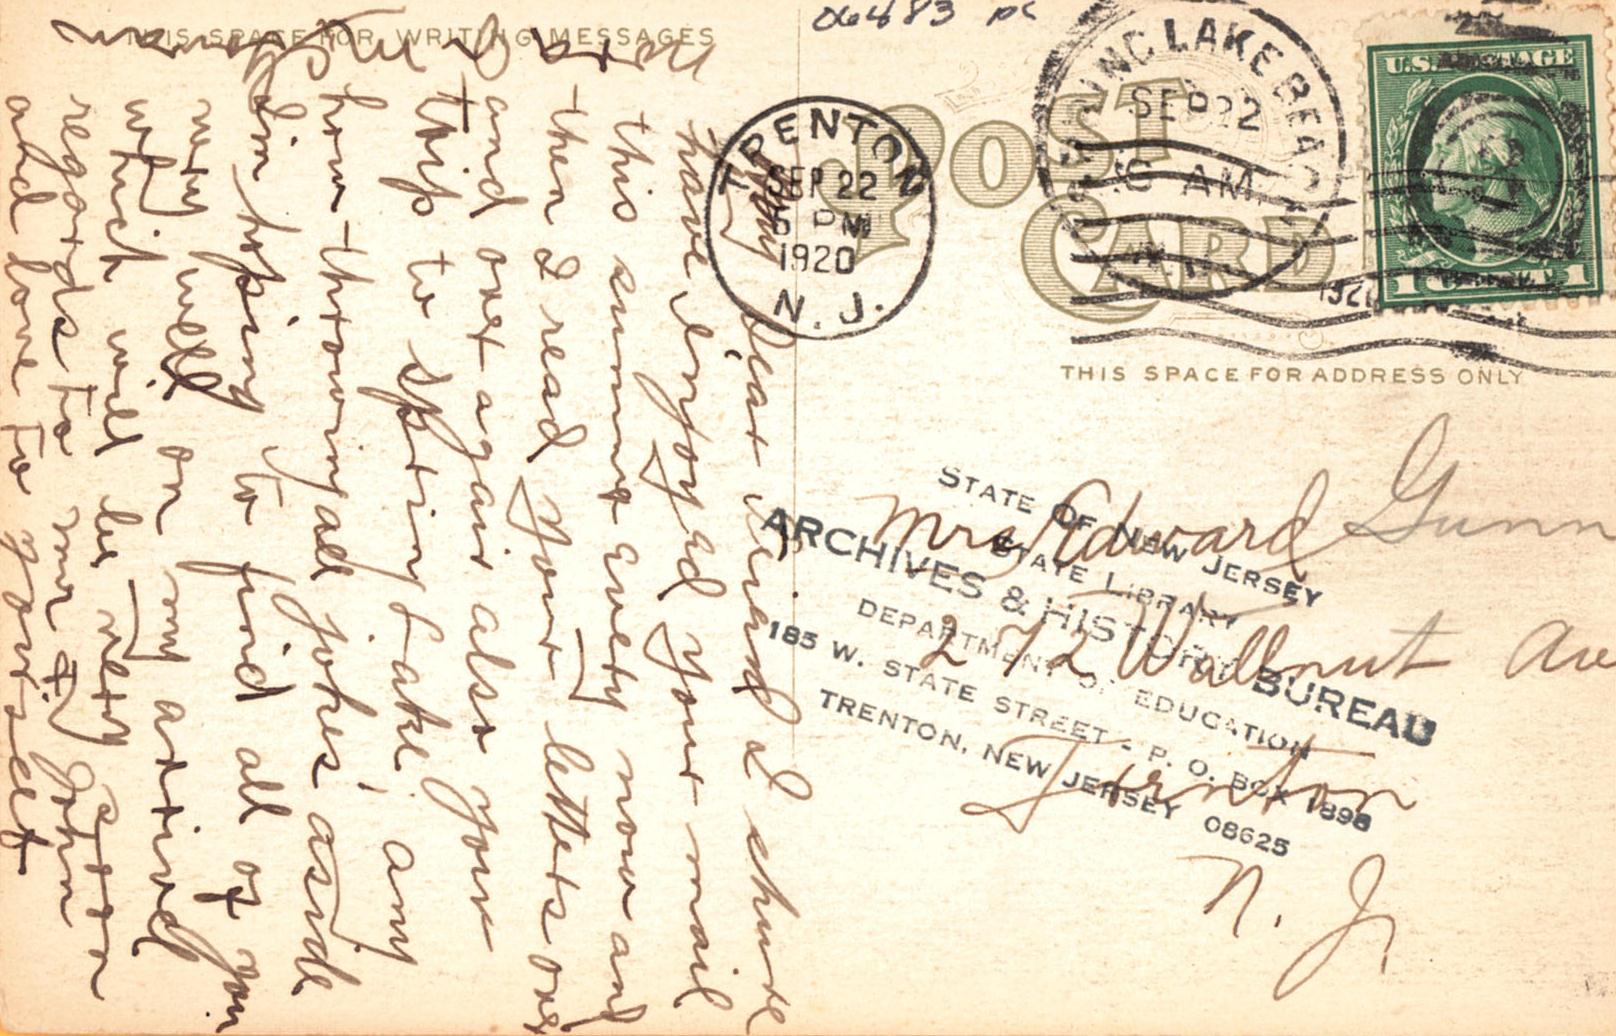 06483 PC
THIS SPACE FOR WRITING MESSAGES
POST
CARD
THIS SPACE FOR ADDRESS ONLY
TRENTON
SEP 22
5 PM
1920
N. J.
LAKE BEACH
SEP 22
6 AM
N.J.
1920
U.S. POSTAGE
1 CENT 1
Dear Friend I shure
have Enjoyed your mail
this summer Every now and
then I read your letters over
and over again also your
trip to Spring Lake any
how throwing all jokes aside
Im hoping to find all of you
very well on my arrival
which will be very soon
regards to Mr John
and love to yourself
Mrs Edward Gunn
272 Wallnut Ave
Trenton
N. J.
STATE OF NEW JERSEY
STATE LIBRARY
ARCHIVES & HISTORY BUREAU
DEPARTMENT OF EDUCATION
185 W. STATE STREET - P. O. BOX 1898
TRENTON, NEW JERSEY 08625